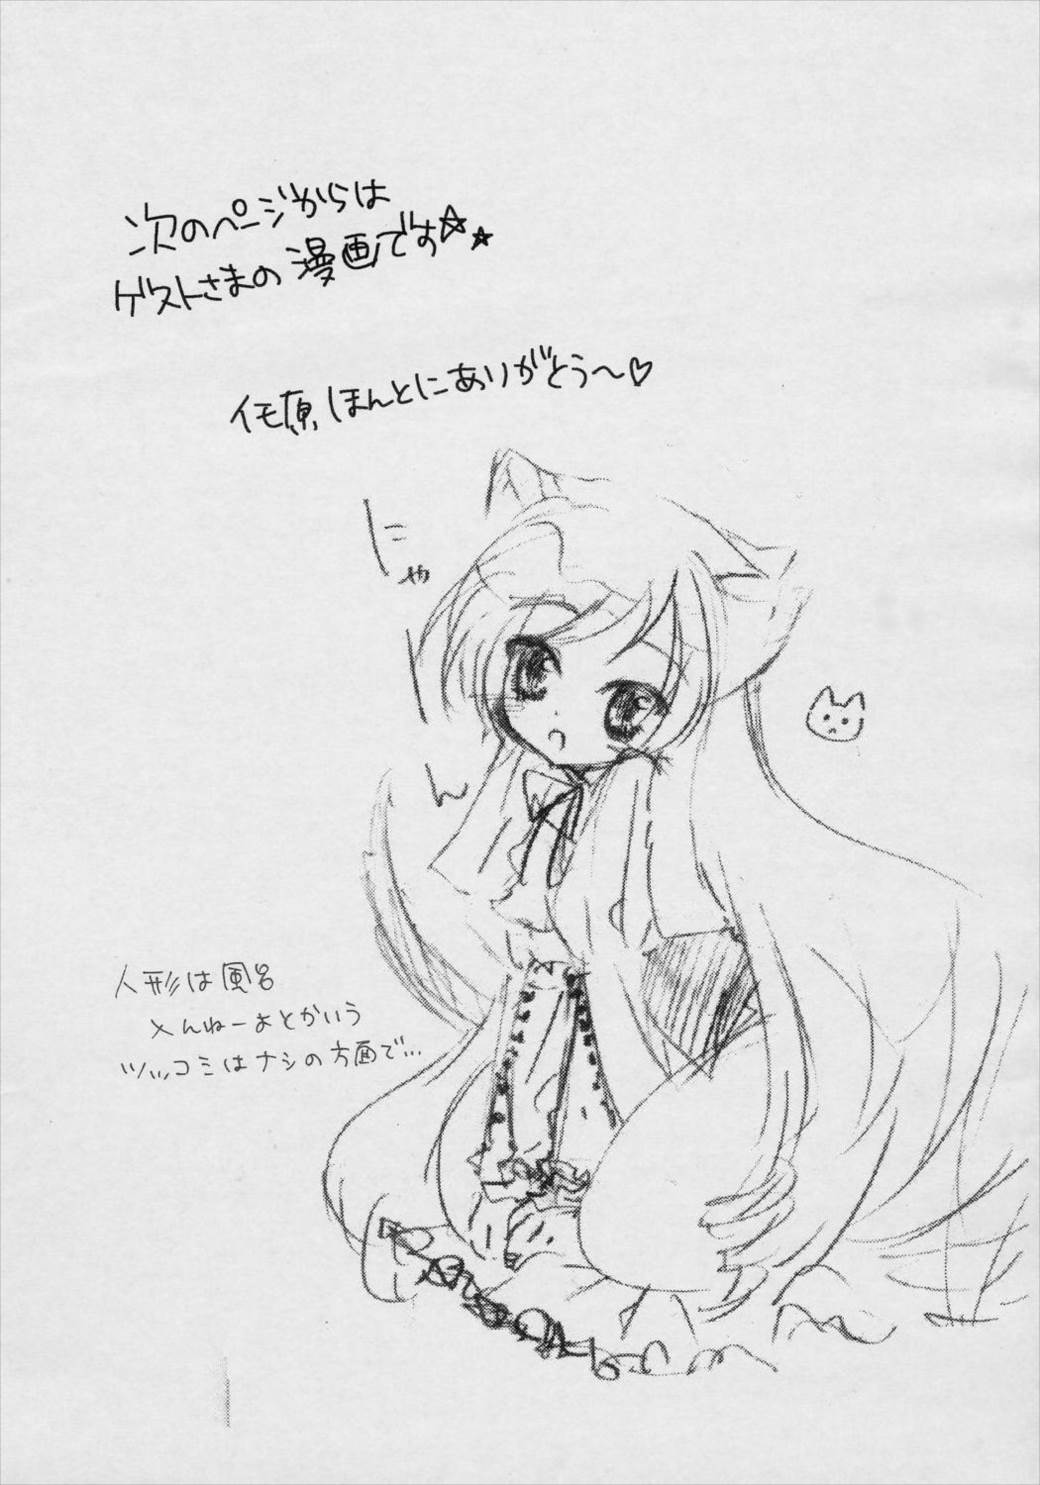 次のページからは
ゲストさまの漫画です☆★
イモ原、ほんとにありがとう～♡
にゃーん
人形は風呂
×んねーよとかいう
ツッコミはナシの方面で…